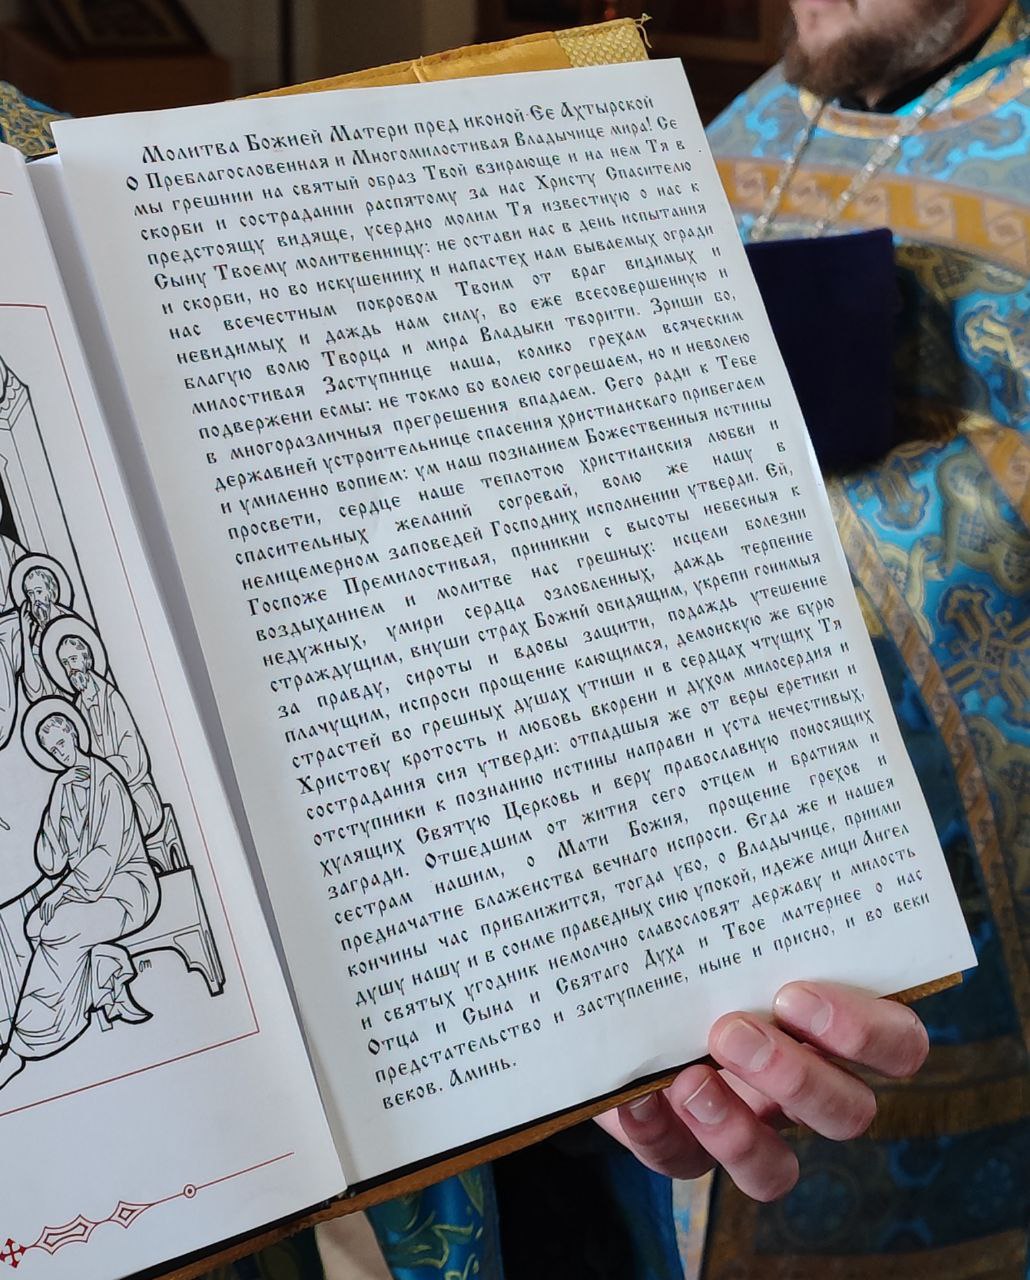 Молитва Божией Матери пред иконой Ее Ахтырской
О Преблагословенная и Многомилостивая Владычице мира! Се
мы грешнии на святый образ Твой взирающе и на нем Тя в
скорби и сострадании распятому за нас Христу Спасителю
предстоящу видяще, усердно молим Тя известную о нас к
Сыну Твоему молитвенницу: не остави нас в день испытания
и скорби, но во искушениих и напастех нам бываемых огради
нас всечестным покровом Твоим от враг видимых и
невидимых и даждь нам силу, во еже всесовершенную и
благую волю Творца и мира Владыки творити. Зриши бо,
милостивая Заступнице наша, колико грехам всяческим
подвержени есмы: не токмо бо волею согрешаем, но и неволею
в многоразличныя прегрешения впадаем. Сего ради к Тебе
державней устроительнице спасения христианскаго прибегаем
и умиленно вопием: ум наш познанием Божественныя истины
просвети, сердце наше теплотою христианския любви и
спасительных желаний согревай, волю же нашу в
нелицемерном заповедей Господних исполнении утверди. Ей,
Госпоже Премилостивая, приникни с высоты небесныя к
воздыханием и молитве нас грешных: исцели болезни
недужных, умири сердца озлобленных, даждь терпение
страждущим, внуши страх Божий обидящим, укрепи гонимыя
за правду, сироты и вдовы защити, подаждь утешение
плачущим, испроси прощение кающимся, демонскую же бурю
страстей во грешных душах утиши и в сердцах чтущих Тя
Христову кротость и любовь вкорени и духом милосердия и
сострадания сия утверди: отпадшыя же от веры еретики и
отступники к познанию истины направи и уста нечестивых,
хулящих Святую Церковь и веру православную поносящих
загради. Отшедшим от жития сего отцем и братиям и
сестрам нашим, о Мати Божия, прощение грехов и
предначатие блаженства вечнаго испроси. Егда же и нашея
кончины час приближится, тогда убо, о Владычице, приими
душу нашу и в сонме праведных сию упокой, идеже лици Ангел
и святых угодник немолчно славословят державу и милость
Отца и Сына и Святаго Духа и Твое матернее о нас
предстательство и заступление, ныне и присно, и во веки
веков. Аминь.